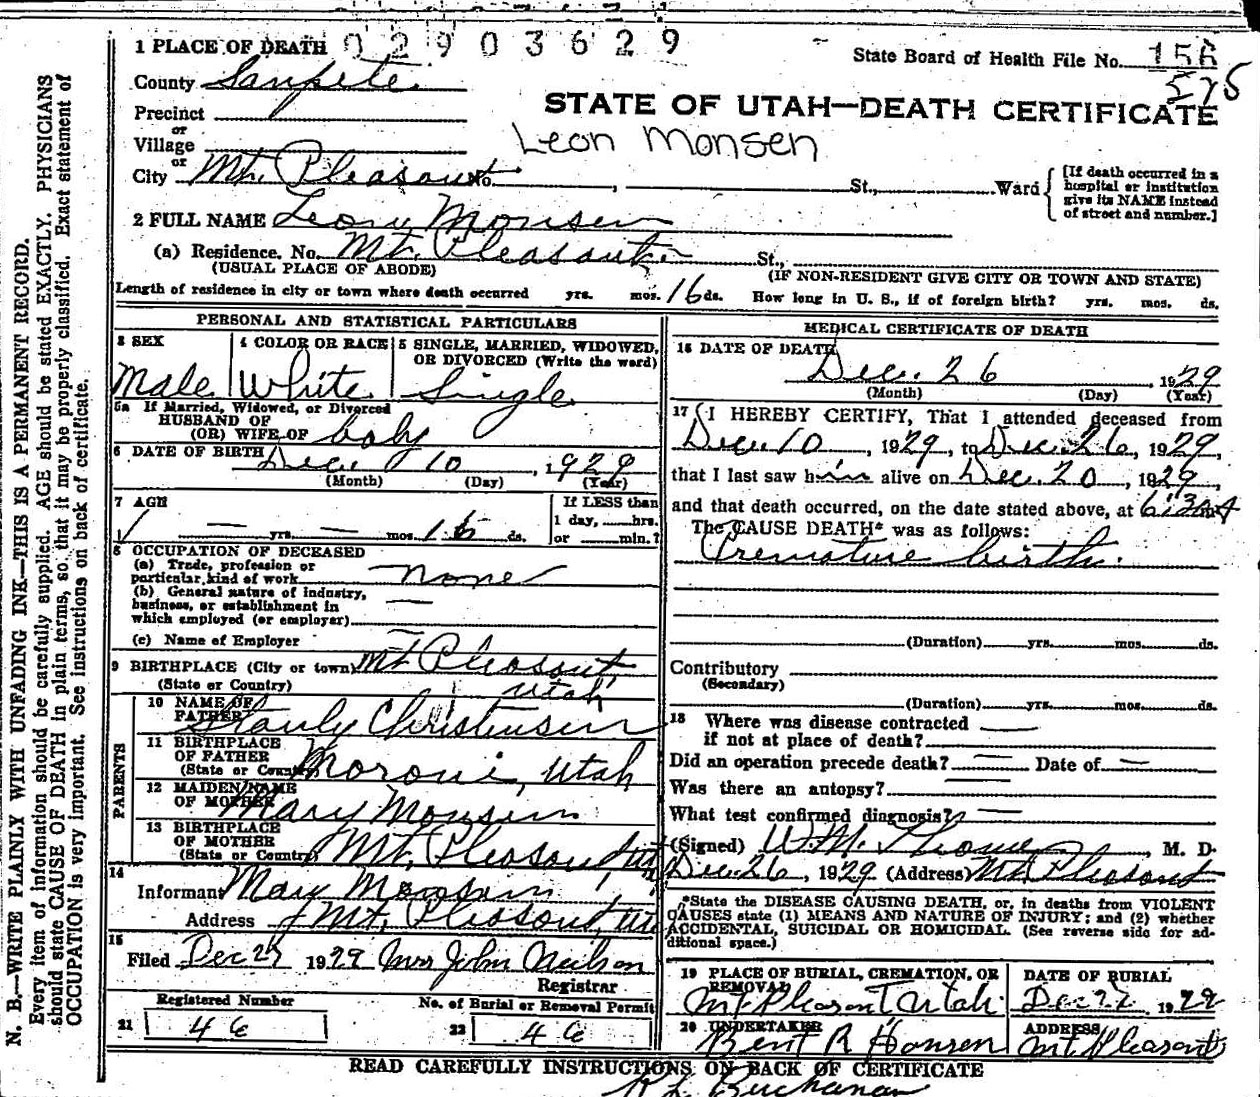 02903629
1 PLACE OF DEATH
State Board of Health File No. 156
575
County Sanpete
STATE OF UTAH—DEATH CERTIFICATE
Precinct
or
Village
Leon Monsen
or
City Mt. Pleasant No. , St., Ward
[If death occurred in a hospital or institution give its NAME instead of street and number.]
2 FULL NAME Leon Monsen
(a) Residence. No. Mt. Pleasant St.,
(USUAL PLACE OF ABODE) (IF NON-RESIDENT GIVE CITY OR TOWN AND STATE)
Length of residence in city or town where death occurred yrs. mos. 16 ds. How long in U. S., if of foreign birth? yrs. mos. ds.
PERSONAL AND STATISTICAL PARTICULARS
3 SEX 4 COLOR OR RACE 5 SINGLE, MARRIED, WIDOWED, OR DIVORCED (Write the word)
Male White Single
5a If Married, Widowed, or Divorced
HUSBAND OF
(OR) WIFE OF baby
6 DATE OF BIRTH Dec. 10, 1929
(Month) (Day) (Year)
7 AGE If LESS than
1 day, hrs.
— yrs. — mos. 16 ds. or min.?
8 OCCUPATION OF DECEASED
(a) Trade, profession or
particular kind of work none
(b) General nature of industry,
business, or establishment in —
which employed (or employer)
(c) Name of Employer —
9 BIRTHPLACE (City or town) Mt Pleasant
(State or Country) Utah
PARENTS
10 NAME OF
FATHER Stanly Christensen
11 BIRTHPLACE
OF FATHER
(State or Country) Moroni, Utah
12 MAIDEN NAME
OF MOTHER Mary Monsen
13 BIRTHPLACE
OF MOTHER
(State or Country) Mt. Pleasant, Ut
14
Informant Mary Monsen
Address Mt. Pleasant, Ut
15
Filed Dec 27 1929 Mrs John Neilson
Registrar
Registered Number No. of Burial or Removal Permit
21 46 22 46
MEDICAL CERTIFICATE OF DEATH
16 DATE OF DEATH
Dec. 26, 1929
(Month) (Day) (Year)
17 I HEREBY CERTIFY, That I attended deceased from
Dec. 10, 1929, to Dec. 26, 1929,
that I last saw him alive on Dec. 20, 1929,
and that death occurred, on the date stated above, at 6:30
The CAUSE DEATH* was as follows:
Premature birth.
(Duration) yrs. mos. ds.
Contributory
(Secondary)
(Duration) yrs. mos. ds.
18 Where was disease contracted —
if not at place of death?
Did an operation precede death? — Date of —
Was there an autopsy? —
What test confirmed diagnosis? —
(Signed) W.M. , M. D.
Dec 26, 1929 (Address) Mt Pleasant
*State the DISEASE CAUSING DEATH, or, in deaths from VIOLENT
CAUSES state (1) MEANS AND NATURE OF INJURY; and (2) whether
ACCIDENTAL, SUICIDAL OR HOMICIDAL. (See reverse side for ad-
ditional space.)
19 PLACE OF BURIAL, CREMATION, OR REMOVAL DATE OF BURIAL
Mt Pleasant Utah Dec 27 1929
20 UNDERTAKER ADDRESS
Bent R Hansen Mt Pleasant
READ CAREFULLY INSTRUCTIONS ON BACK OF CERTIFICATE
Buchanan
N. B.—WRITE PLAINLY WITH UNFADING INK—THIS IS A PERMANENT RECORD.
Every item of information should be carefully supplied. AGE should be stated EXACTLY. PHYSICIANS
should state CAUSE OF DEATH in plain terms, so that it may be properly classified. Exact statement of
OCCUPATION is very important. See instructions on back of certificate.